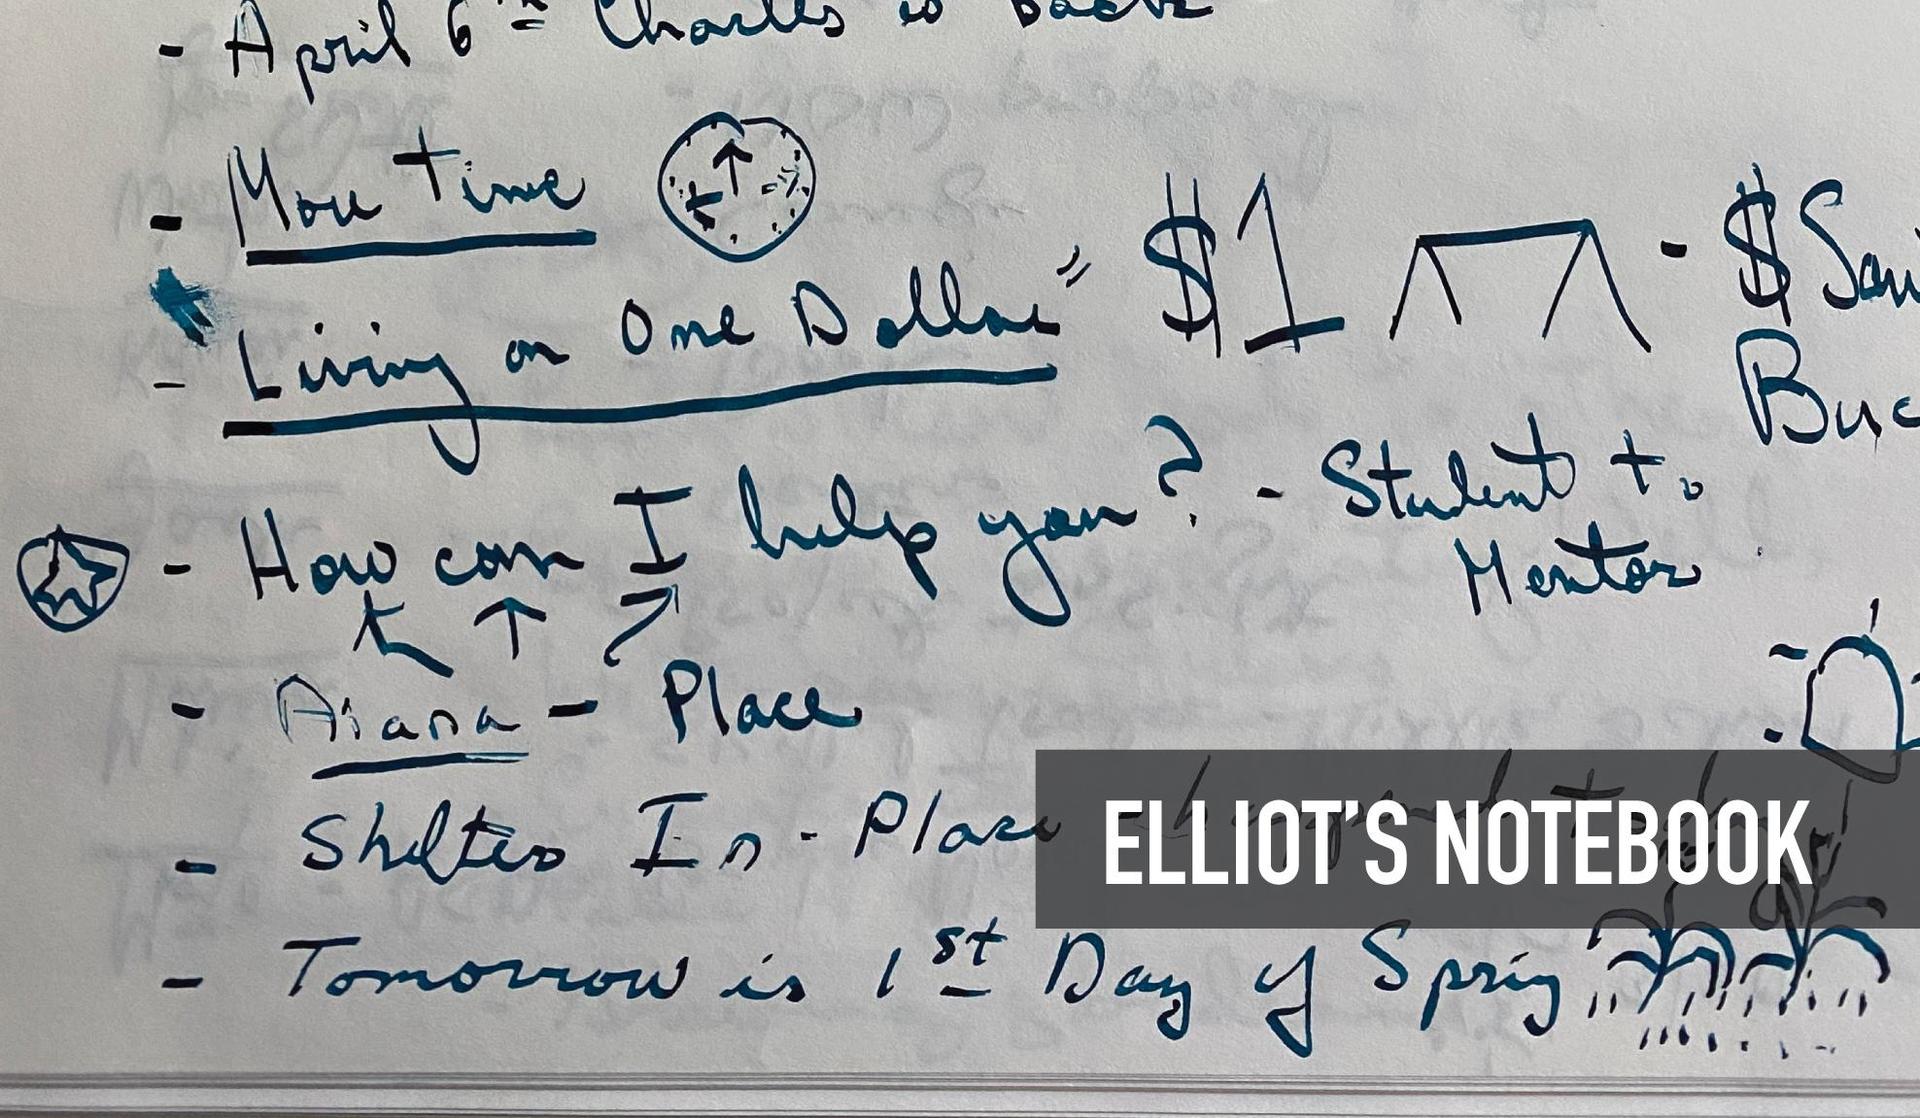 - April 6th Charles is back
- More time
- Living on One Dollar" $1 - $ Sav
Buc
- How can I help you? - Student to
Mentor
- Ariana - Place
- Shelter In-Place
ELLIOT'S NOTEBOOK
- Tomorrow is 1st Day of Sprig